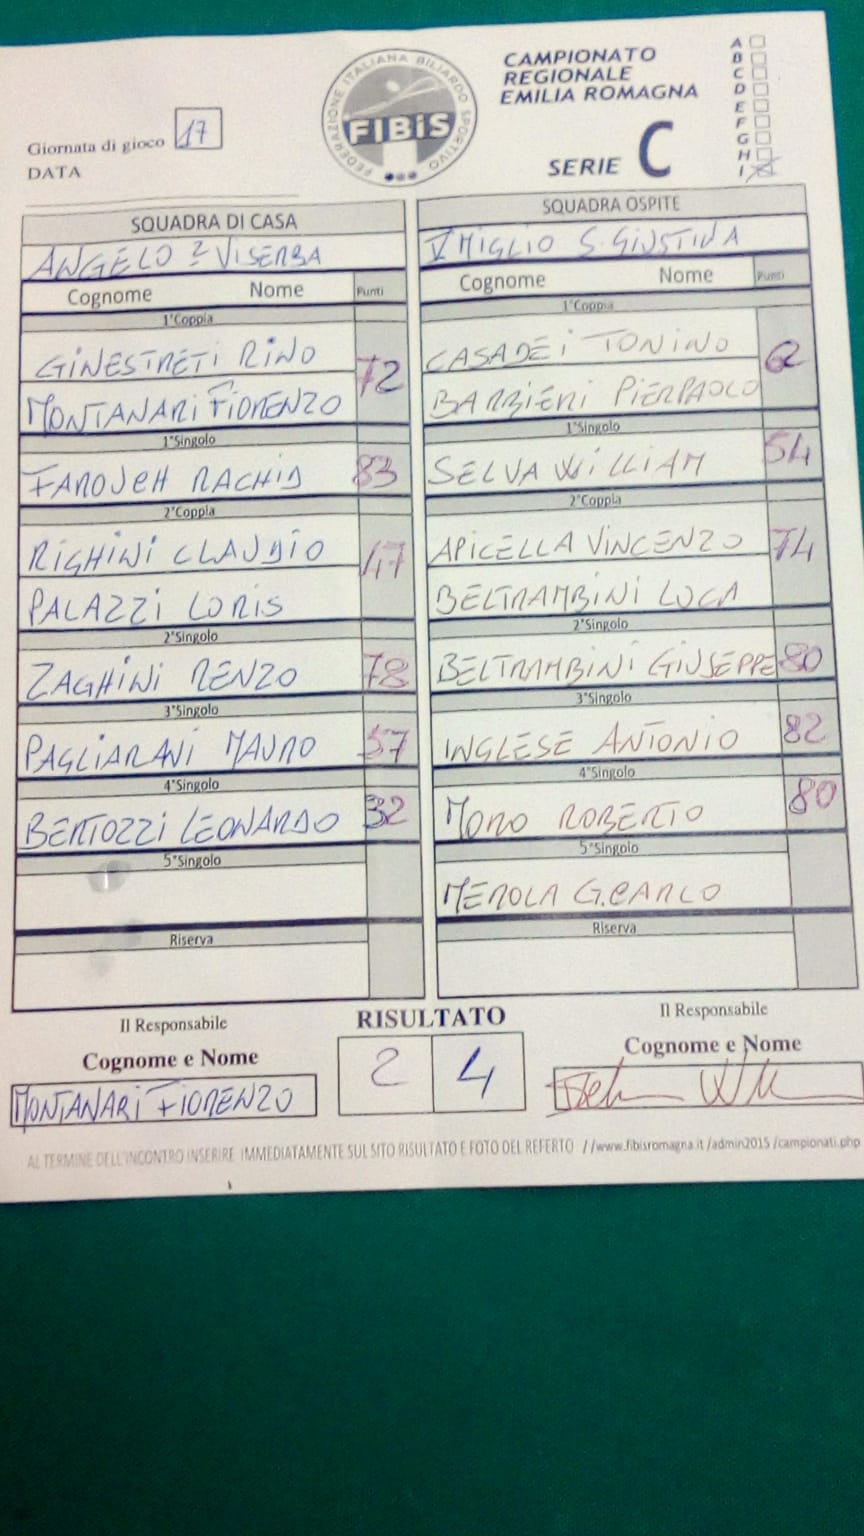 CAMPIONATO
REGIONALE
EMILIA ROMAGNA
SERIE C
A
B
C
D
E
F
G
H
I
FEDERAZIONE ITALIANA BILIARDO SPORTIVO
FIBiS
Giornata di gioco 17
DATA
SQUADRA DI CASA
ANGELO 2 VISERBA
Cognome Nome Punti
1°Coppia
GINESTRETI RINO
72
MONTANARI FIORENZO
1°Singolo
FAROJEH RACHID 83
2°Coppia
RIGHINI CLAUDIO
47
PALAZZI LORIS
2°Singolo
ZAGHINI RENZO 78
3°Singolo
PAGLIARANI MAURO 57
4°Singolo
BERTOZZI LEONARDO 32
5°Singolo
Riserva
SQUADRA OSPITE
V MIGLIO S. GIUSTINA
Cognome Nome Punti
1°Coppia
CASADEI TONINO
BARBIERI PIERPAOLO
1°Singolo
SELVA WILLIAM 54
2°Coppia
APICELLA VINCENZO
74
BELTRAMBINI LUCA
2°Singolo
BELTRAMBINI GIUSEPPE 80
3°Singolo
INGLESE ANTONIO 82
4°Singolo
MORO ROBERTO 80
5°Singolo
MEROLA G.CARLO
Riserva
Il Responsabile
Cognome e Nome
MONTANARI FIORENZO
RISULTATO
2 4
Il Responsabile
Cognome e Nome
AL TERMINE DELL'INCONTRO INSERIRE IMMEDIATAMENTE SUL SITO RISULTATO E FOTO DEL REFERTO //www.fibisromagna.it /admin2015 /campionati.php